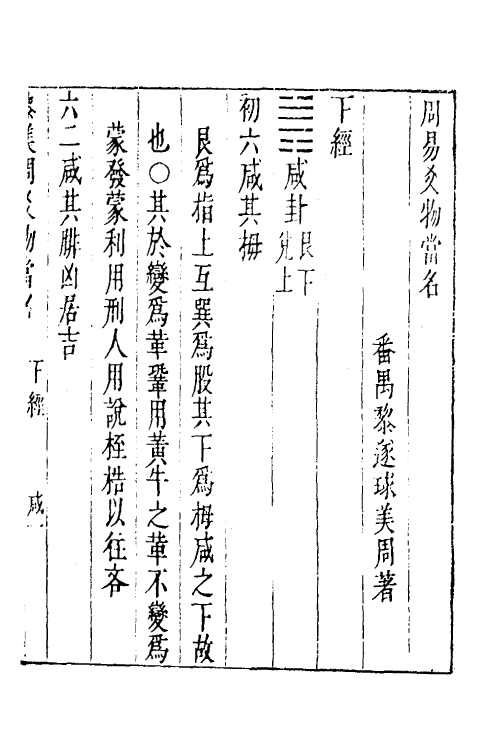 周易爻物當名
番禺黎遂球美周著
下經
咸卦 艮下 兌上
初六咸其拇
艮爲指上互巽爲股其下爲拇咸之下故
也○其於變爲革鞏用黃牛之革不變爲
蒙發蒙利用刑人用說桎梏以往吝
六二咸其腓凶居吉
美周爻物當名 下經 咸